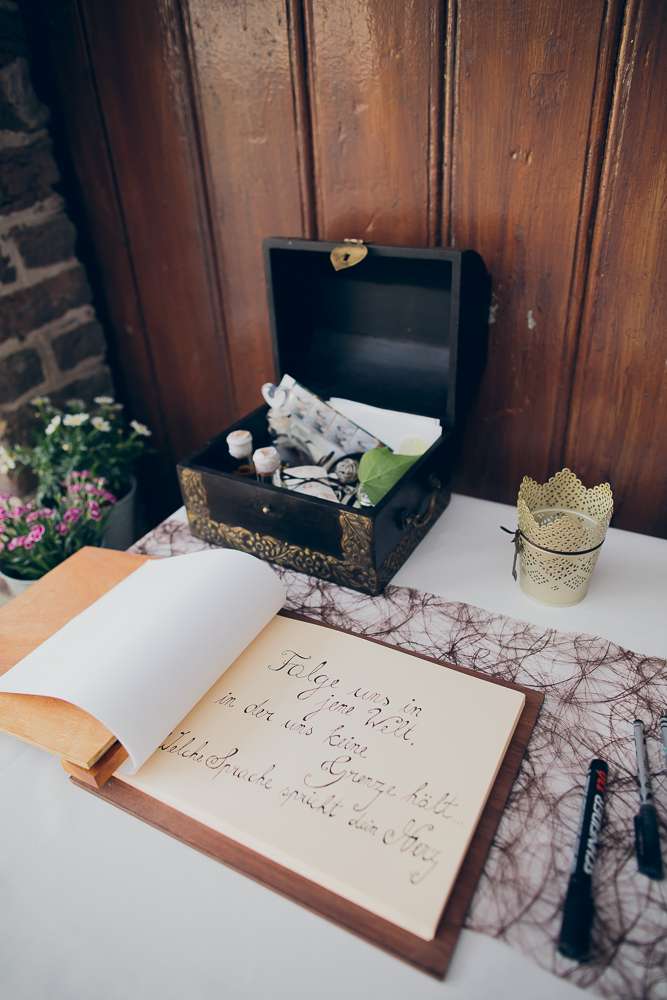 Folge uns in
jene Welt,
in der uns keine
Grenze hält...
Welche Sprache spricht dein Herz
edding